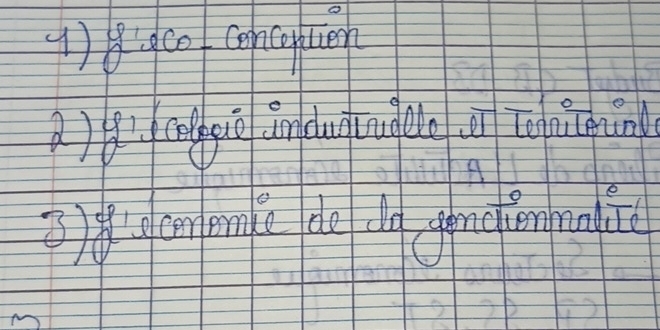 1) L'éco-conception
2) L'écologie industrielle et territoriale
3) L'économie de la fonctionnalité